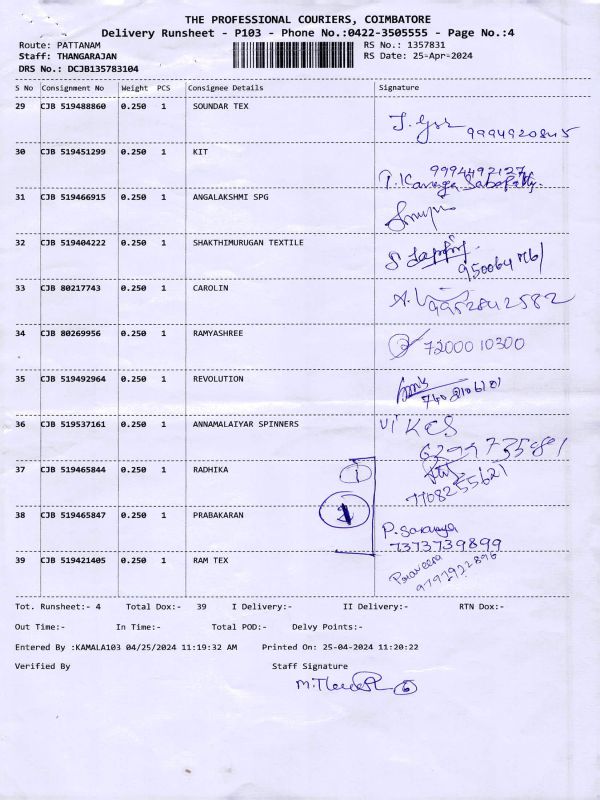 THE PROFESSIONAL COURIERS, COIMBATORE
Delivery Runsheet - P103 - Phone No.:0422-3505555 - Page No.:4
Route: PATTANAM RS No.: 1357831
Staff: THANGARAJAN RS Date: 25-Apr-2024
DRS No.: DCJB135783104
S No Consignment No Weight PCS Consignee Details Signature
29 CJB 519488860 0.250 1 SOUNDAR TEX
30 CJB 519451299 0.250 1 KIT
9994492127
31 CJB 519466915 0.250 1 ANGALAKSHMI SPG
32 CJB 519404222 0.250 1 SHAKTHIMURUGAN TEXTILE
33 CJB 80217743 0.250 1 CAROLIN
9952842582
34 CJB 80269956 0.250 1 RAMYASHREE
7200010300
35 CJB 519492964 0.250 1 REVOLUTION
36 CJB 519537161 0.250 1 ANNAMALAIYAR SPINNERS
37 CJB 519465844 0.250 1 RADHIKA 1
7708255621
38 CJB 519465847 0.250 1 PRABAKARAN
P. Saranya
7373739899
39 CJB 519421405 0.250 1 RAM TEX
Praveena
9797922896
Tot. Runsheet:- 4 Total Dox:- 39 I Delivery:- II Delivery:- RTN Dox:-
Out Time:- In Time:- Total POD:- Delvy Points:-
Entered By :KAMALA103 04/25/2024 11:19:32 AM Printed On: 25-04-2024 11:20:22
Verified By Staff Signature